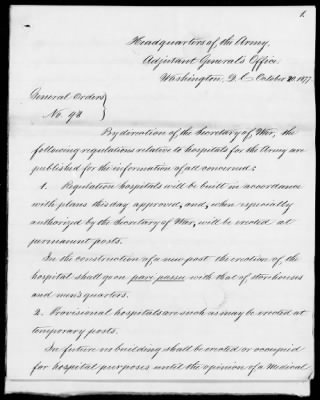 1.
Headquarters of the Army,
Adjutant General's Office,
Washington, D.C. October 20, 1877.
General Orders
No. 94.
By direction of the Secretary of War, the
following regulations relative to hospitals for the Army are
published for the information of all concerned:
1. Regulation hospitals will be built in accordance
with plans this day approved, and, when especially
authorized by the Secretary of War, will be erected at
permanent posts.
In the construction of a new post the erection of the
hospital shall go on pari passu with that of storehouses
and men's quarters.
2. Provisional hospitals are such as may be erected at
temporary posts.
In future no building shall be erected or occupied
for hospital purposes until the opinion of a Medical